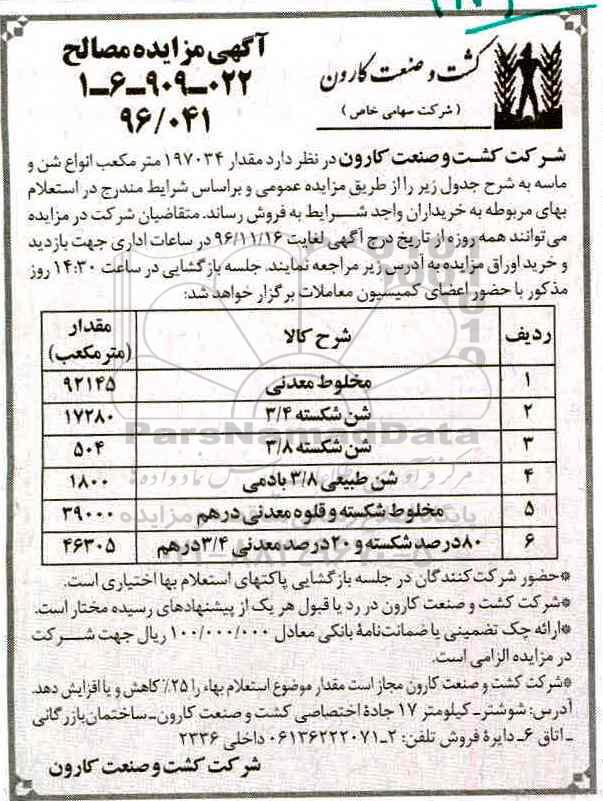 آگهی مزایده مصالح
۱-۶-۹۰۹-۰۲۲
۹۶/۰۴۱
کشت و صنعت کارون
( شرکت سهامی خاص )
شرکت کشت و صنعت کارون در نظر دارد مقدار ۱۹۷۰۳۴ متر مکعب انواع شن و
ماسه به شرح جدول زیر را از طریق مزایده عمومی و براساس شرایط مندرج در استعلام
بهای مربوطه به خریداران واجد شرایط به فروش رساند. متقاضیان شرکت در مزایده
می‌توانند همه روزه از تاریخ درج آگهی لغایت ۹۶/۱۱/۱۶ در ساعات اداری جهت بازدید
و خرید اوراق مزایده به آدرس زیر مراجعه نمایند. جلسه بازگشایی در ساعت ۱۴:۳۰ روز
مذکور با حضور اعضای کمیسیون معاملات برگزار خواهد شد:
ردیف شرح کالا مقدار (متر مکعب)
۱ مخلوط معدنی ۹۲۱۴۵
۲ شن شکسته ۳/۴ ۱۷۲۸۰
۳ شن شکسته ۳/۸ ۵۰۴
۴ شن طبیعی ۳/۸ بادمی ۱۸۰۰
۵ مخلوط شکسته و قلوه معدنی درهم ۳۹۰۰۰
۶ ۸۰درصد شکسته و ۲۰درصد معدنی ۳/۴درهم ۴۶۳۰۵
*حضور شرکت‌کنندگان در جلسه بازگشایی پاکتهای استعلام بها اختیاری است.
*شرکت کشت و صنعت کارون در رد یا قبول هر یک از پیشنهادهای رسیده مختار است.
*ارائه چک تضمینی یا ضمانت‌نامهٔ بانکی معادل ۱۰۰/۰۰۰/۰۰۰ ریال جهت شرکت
در مزایده الزامی است.
*شرکت کشت و صنعت کارون مجاز است مقدار موضوع استعلام بهاء را ۲۵٪ کاهش و یا افزایش دهد.
آدرس: شوشتر-کیلومتر ۱۷ جادهٔ اختصاصی کشت و صنعت کارون-ساختمان بازرگانی
-اتاق ۶-دایرهٔ فروش تلفن: ۲-۰۶۱۳۶۲۲۲۰۷۱ داخلی ۲۳۳۶
شرکت کشت و صنعت کارون
ParsNamadData